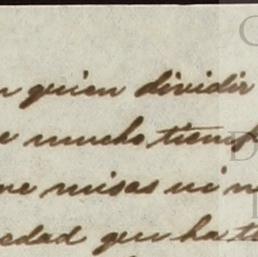 n quien dividir
e mucho tiemp
ne misas ni n
edad que ha t